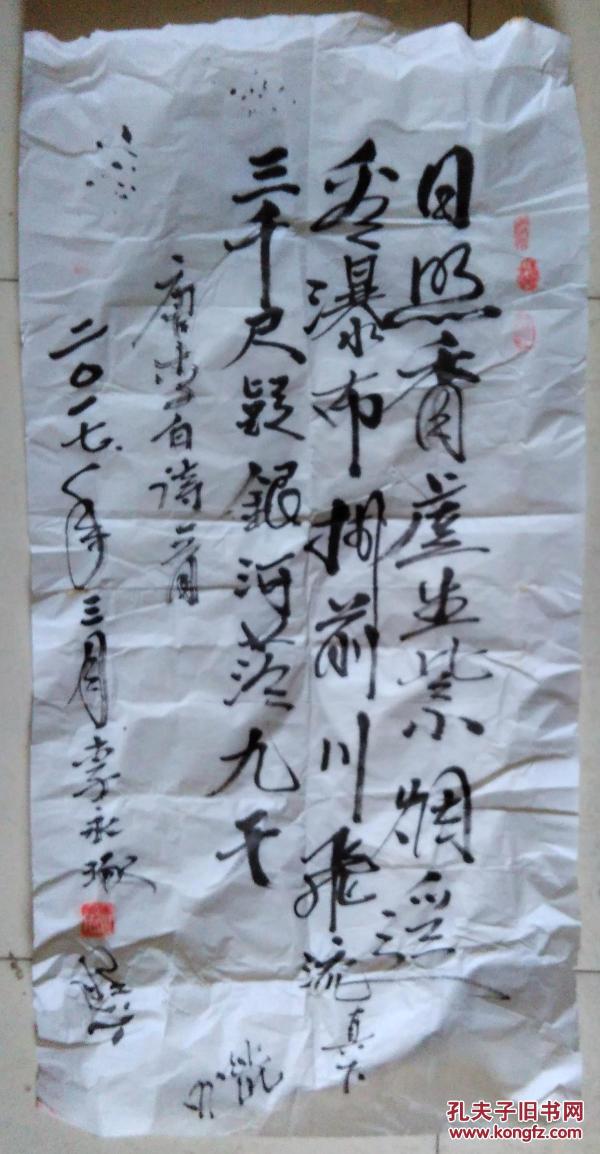 日照香虚生紫烟遥
看瀑布挂前川飛流真下
三千尺疑銀河落九天
唐李白诗一首
二〇一七年三月李永
孔夫子旧书网
www.kongfz.com